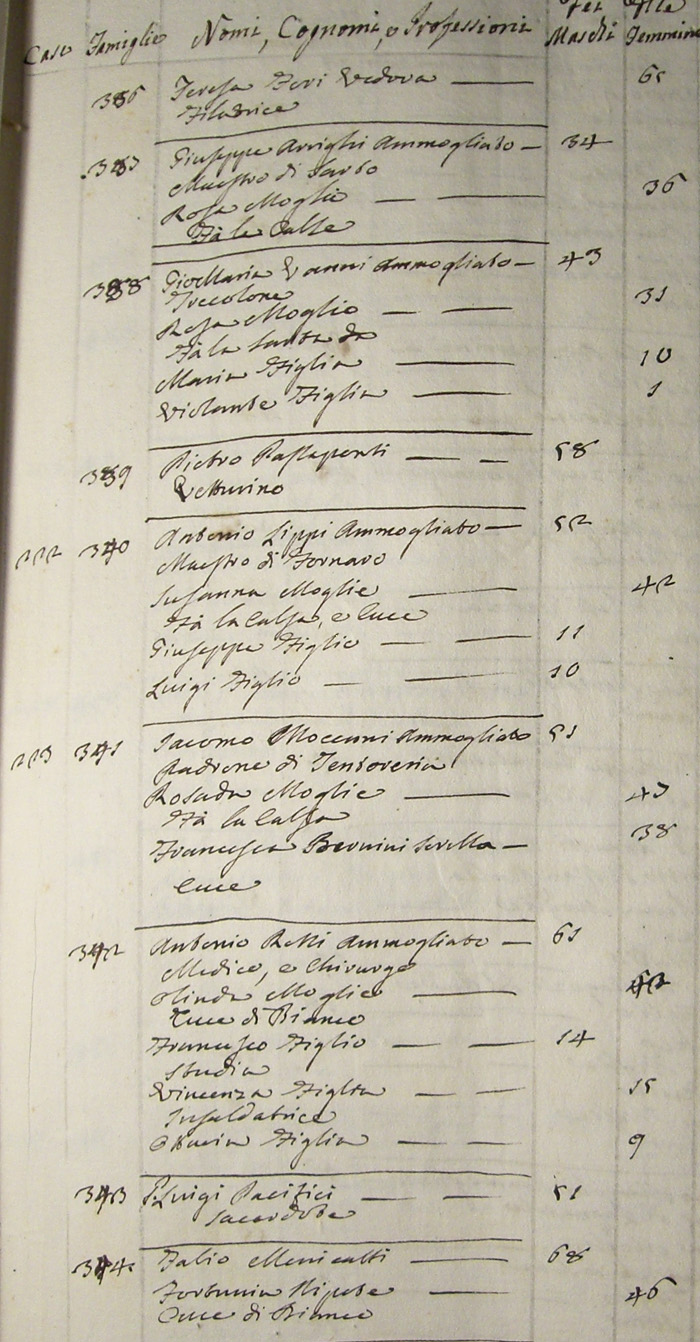 Case Famiglie Nomi, Cognomi, e Professioni Maschi Femmine
336 Teresa Vedova 65
Filatrice
337 Giuseppe Arrighi Ammogliato 34
Maestro di Sarto
Rosa Moglie 36
Fà le Calze
338 Gio Maria Vanni Ammogliato 43
Treccolone
Rosa Moglie 31
Fà la
Maria Figlia 10
Violante Figlia 1
339 Pietro 58
Vetturino
222 340 Antonio Lippi Ammogliato 52
Maestro di Fornaro
Susanna Moglie 42
Fà la Calza, e Cuce
Giuseppe Figlio 11
Luigi Figlio 10
223 341 Jacomo Moccenni Ammogliato 51
Padrone di Tentoreria
Rosada Moglie 47
Fà la Calza
Francesca Bernini Sorella 38
Cuce
342 Antonio Ammogliato 61
Medico, e Chirurgo
Olinda Moglie
Cuce di Bianco
Francesco Figlio 14
Studia
Vincenza Figlia 15
Insaldatrice
Figlia 9
343 P. Luigi Pacifici 51
Sacerdote
344 68
Fortunia Nipote 46
Cuce di Bianco